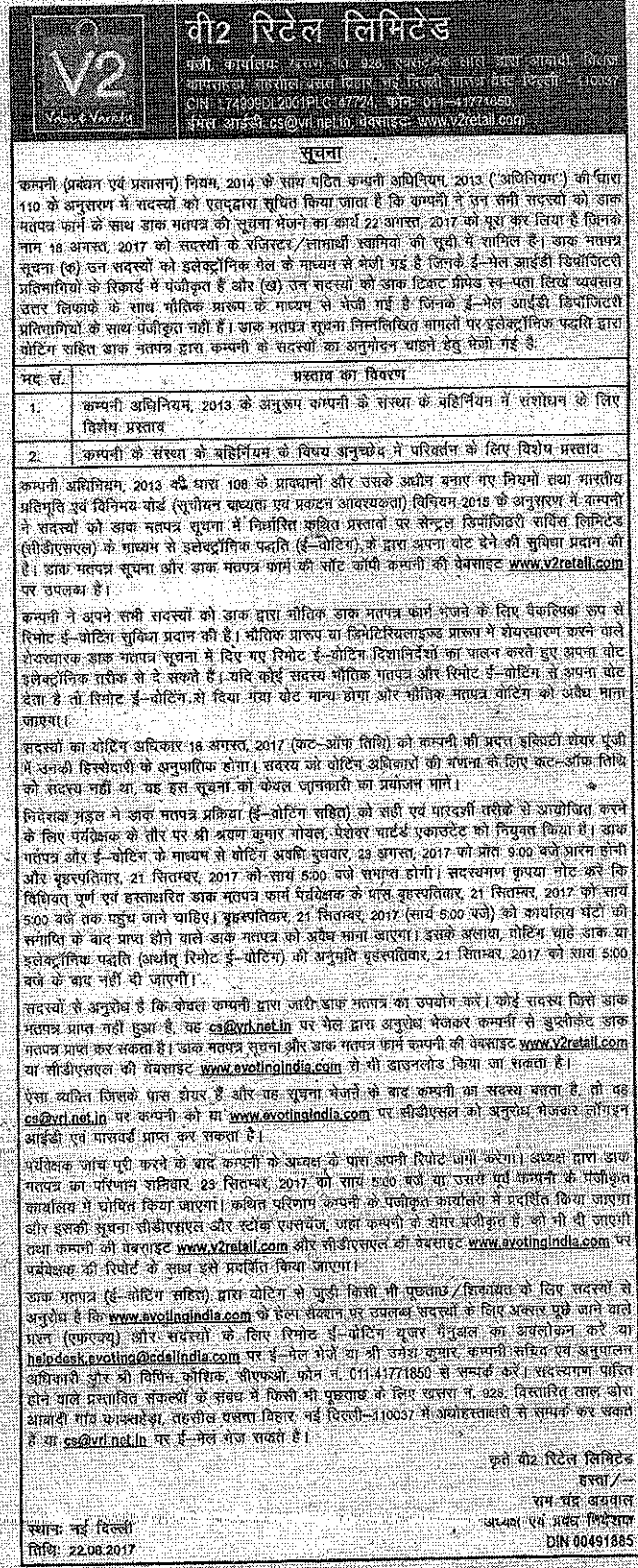 वी2 रिटेल लिमिटेड
V2
Value & Variety
पंजी. कार्यालयः खसरा नं. 928, एक्सटेंडेड लाल डोरा आबादी, विलेज
कापसहेड़ा, तहसील वसंत विहार नई दिल्ली दिल्ली- 110037
CIN L74999DL2001PLC147724, फोनः 011-41771850,
ईमेल आईडी cs@vrl.net.in, वेबसाइटः www.v2retail.com
सूचना
कम्पनी (प्रबंधन एवं प्रशासन) नियम, 2014 के साथ पठित कम्पनी अधिनियम, 2013 ("अधिनियम") की धारा
110 के अनुसरण में सदस्यों को एतद्द्वारा सूचित किया जाता है कि कम्पनी ने उन सभी सदस्यों को डाक
मतपत्र फार्म के साथ डाक मतपत्र की सूचना भेजने का कार्य 22 अगस्त, 2017 को पूरा कर लिया है जिनके
नाम 18 अगस्त, 2017 को सदस्यों के रजिस्टर/लाभार्थी स्वामियों की सूची में शामिल है। डाक मतपत्र
सूचना (क) उन सदस्यों को इलेक्ट्रॉनिक मेल के माध्यम से भेजी गई है जिनके ई-मेल आईडी डिपॉजिटरी
प्रतिभागियों के रिकार्ड में पंजीकृत हैं और (ख) उन सदस्यों को डाक टिकट प्रीपेड स्व-पता लिखे व्यवसाय
उत्तर लिफाफे के साथ भौतिक प्रारूप के माध्यम से भेजी गई है जिनके ई-मेल आईडी डिपॉजिटरी
प्रतिभागियों के साथ पंजीकृत नहीं हैं। डाक मतपत्र सूचना निम्नलिखित मामलों पर इलेक्ट्रॉनिक पद्धति द्वारा
वोटिंग सहित डाक मतपत्र द्वारा कम्पनी के सदस्यों का अनुमोदन चाहने हेतु भेजी गई है:
मद सं. प्रस्ताव का विवरण
1. कम्पनी अधिनियम, 2013 के अनुरूप कम्पनी के संस्था के बहिर्नियम में संशोधन के लिए
विशेष प्रस्ताव
2. कम्पनी के संस्था के बहिर्नियम के विषय अनुच्छेद में परिवर्तन के लिए विशेष प्रस्ताव
कम्पनी अधिनियम, 2013 की धारा 108 के प्रावधानों और उसके अधीन बनाए गए नियमों तथा भारतीय
प्रतिभूति एवं विनिमय बोर्ड (सूचीयन बाध्यता एवं प्रकटन आवश्यकता) विनियम 2015 के अनुसरण में कम्पनी
ने सदस्यों को डाक मतपत्र सूचना में निर्धारित कथित प्रस्तावों पर सेन्ट्रल डिपॉजिटरी सर्विस लिमिटेड
(सीडीएसएल) के माध्यम से इलेक्ट्रॉनिक पद्धति (ई-वोटिंग) के द्वारा अपना वोट देने की सुविधा प्रदान की
है। डाक मतपत्र सूचना और डाक मतपत्र फार्म की सॉट कॉपी कम्पनी की वेबसाइट www.v2retail.com
पर उपलब्ध है।
कम्पनी ने अपने सभी सदस्यों को डाक द्वारा भौतिक डाक मतपत्र फार्म भेजने के लिए वैकल्पिक रूप से
रिमोट ई-वोटिंग सुविधा प्रदान की है। भौतिक प्रारूप या डिमेटिरियलाइज्ड प्रारूप में शेयरधारण करने वाले
शेयरधारक डाक मतपत्र सूचना में दिए गए रिमोट ई-वोटिंग दिशानिर्देशों का पालन करते हुए अपना वोट
इलेक्ट्रॉनिक तरीके से दे सकते हैं। यदि कोई सदस्य भौतिक मतपत्र और रिमोट ई-वोटिंग से अपना वोट
देता है तो रिमोट ई-वोटिंग से दिया गया वोट मान्य होगा और भौतिक मतपत्र वोटिंग को अवैध माना
जाएगा।
सदस्यों का वोटिंग अधिकार 18 अगस्त, 2017 (कट-ऑफ तिथि) को कम्पनी की प्रदत्त इक्विटी शेयर पूंजी
में उनकी हिस्सेदारी के अनुपातिक होगा। सदस्य जो वोटिंग अधिकारों की गणना के लिए कट-ऑफ तिथि
को सदस्य नहीं था, वह इस सूचना को केवल जानकारी का प्रयोजन माने।
निदेशक मंडल ने डाक मतपत्र प्रक्रिया (ई-वोटिंग सहित) को सही एवं पारदर्शी तरीके से आयोजित करने
के लिए पर्यवेक्षक के तौर पर श्री श्रवण कुमार गोयल, पेशेवर चार्टर्ड एकाउंटेंट को नियुक्त किया है। डाक
मतपत्र और ई-वोटिंग के माध्यम से वोटिंग अवधि बुधवार, 23 अगस्त, 2017 को प्रातः 9:00 बजे प्रारंभ होगी
और बृहस्पतिवार, 21 सितम्बर, 2017 को सायं 5:00 बजे समाप्त होगी। सदस्यगण कृपया नोट करें कि
विधिवत् पूर्ण एवं हस्ताक्षरित डाक मतपत्र फार्म पर्यवेक्षक के पास बृहस्पतिवार, 21 सितम्बर, 2017 को सायं
5:00 बजे तक पहुंच जाने चाहिए। बृहस्पतिवार, 21 सितम्बर, 2017 (सायं 5:00 बजे) को कार्यालय घंटों की
समाप्ति के बाद प्राप्त होने वाले डाक मतपत्र को अवैध माना जाएगा। इसके अलावा, वोटिंग चाहे डाक या
इलेक्ट्रॉनिक पद्धति (अर्थात् रिमोट ई-वोटिंग) की अनुमति बृहस्पतिवार, 21 सितम्बर, 2017 को सायं 5:00
बजे के बाद नहीं दी जाएगी।
सदस्यों से अनुरोध है कि केवल कम्पनी द्वारा जारी डाक मतपत्र का उपयोग करें। कोई सदस्य जिसे डाक
मतपत्र प्राप्त नहीं हुआ है, वह cs@vrl.net.in पर मेल द्वारा अनुरोध भेजकर कम्पनी से डुप्लीकेट डाक
मतपत्र प्राप्त कर सकता है। डाक मतपत्र सूचना और डाक मतपत्र फार्म कम्पनी की वेबसाइट www.v2retail.com
या सीडीएसएल की वेबसाइट www.evotingindia.com से भी डाउनलोड किया जा सकता है।
ऐसा व्यक्ति जिसके पास शेयर हैं और वह सूचना भेजने के बाद कम्पनी का सदस्य बनता है, तो वह
cs@vrl.net.in पर कम्पनी को या www.evotingindia.com पर सीडीएसएल को अनुरोध भेजकर लॉगइन
आईडी एवं पासवर्ड प्राप्त कर सकता है।
पर्यवेक्षक जांच पूरी करने के बाद कम्पनी के अध्यक्ष के पास अपनी रिपोर्ट जमा करेगा। अध्यक्ष द्वारा डाक
मतपत्र का परिणाम शनिवार, 23 सितम्बर, 2017 को सायं 5:00 बजे या उससे पूर्व कम्पनी के पंजीकृत
कार्यालय में घोषित किया जाएगा। कथित परिणाम कम्पनी के पंजीकृत कार्यालय में प्रदर्शित किया जाएगा
और इसकी सूचना सीडीएसएल और स्टॉक एक्सचेंज, जहां कम्पनी के शेयर पंजीकृत हैं, को भी दी जाएगी
तथा कम्पनी की वेबसाइट www.v2retail.com और सीडीएसएल की वेबसाइट www.evotingindia.com पर
पर्यवेक्षक की रिपोर्ट के साथ इसे प्रदर्शित किया जाएगा।
डाक मतपत्र (ई-वोटिंग सहित) द्वारा वोटिंग से जुड़ी किसी भी पूछताछ/शिकायत के लिए सदस्यों से
अनुरोध है कि www.evotingindia.com के हेल्प सेक्शन पर उपलब्ध सदस्यों के लिए अक्सर पूछे जाने वाले
प्रश्न (एफएक्यू) और सदस्यों के लिए रिमोट ई-वोटिंग यूजर मैनुअल का अवलोकन करें या
helpdesk.evoting@cdslindia.com पर ई-मेल भेजें या श्री उमेश कुमार, कम्पनी सचिव एवं अनुपालन
अधिकारी और श्री विपिन कौशिक, सीएफओ, फोन नं. 011-41771850 से सम्पर्क करें। सदस्यगण पारित
होने वाले प्रस्तावित संकल्पों के संबंध में किसी भी पूछताछ के लिए खसरा नं. 928, विस्तारित लाल डोरा
आबादी गांव कापसहेड़ा, तहसील वसन्त विहार, नई दिल्ली-110037 में अधोहस्ताक्षरी से सम्पर्क कर सकते
हैं या cs@vrl.net.in पर ई-मेल भेज सकते हैं।
कृते वी2 रिटेल लिमिटेड
हस्ता/-
राम चंद्र अग्रवाल
स्थानः नई दिल्ली अध्यक्ष एवं प्रबंध निदेशक
तिथिः 22.08.2017 DIN 00491885